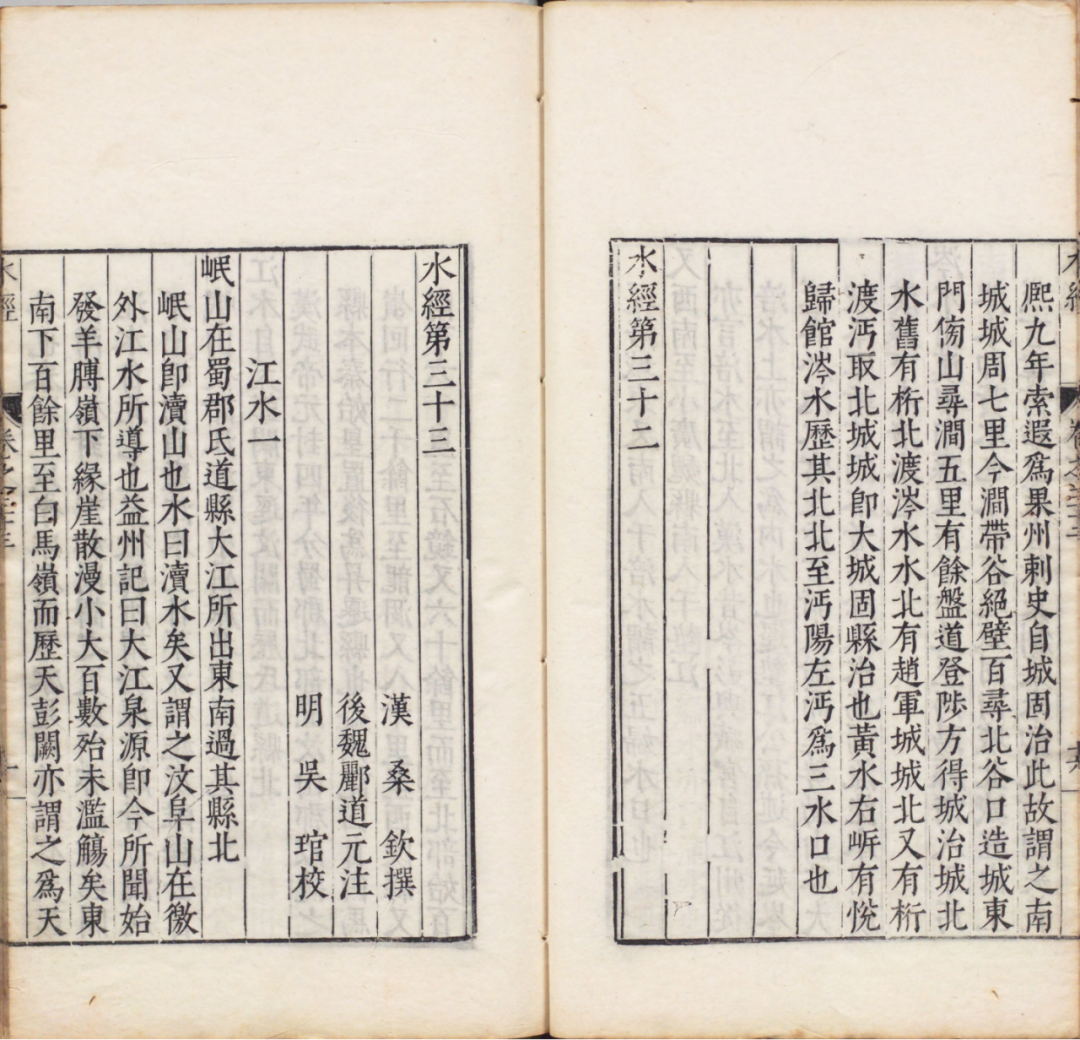 熈九年索遐爲果州刺史自城固治此故謂之南
城城周七里今澗帶谷絕壁百尋北谷口造城東
門傍山尋澗五里有餘盤道登陟方得城治城北
水舊有桁北渡涔水水北有趙軍城城北又有桁
渡沔取北城城卽大城固縣治也黃水右㟁有悅
歸館涔水歷其北北至沔陽左沔爲三水口也
水經第三十二
水經第三十三
漢桑欽撰
後魏酈道元注
明吳琯校
江水一
岷山在蜀郡氐道縣大江所出東南過其縣北
岷山卽瀆山也水曰瀆水矣又謂之汶阜山在徼
外江水所導也益州記曰大江泉源卽今所聞始
發羊膊嶺下緣崖散漫小大百數殆未濫觴矣東
南下百餘里至白馬嶺而歷天彭闕亦謂之爲天
水經